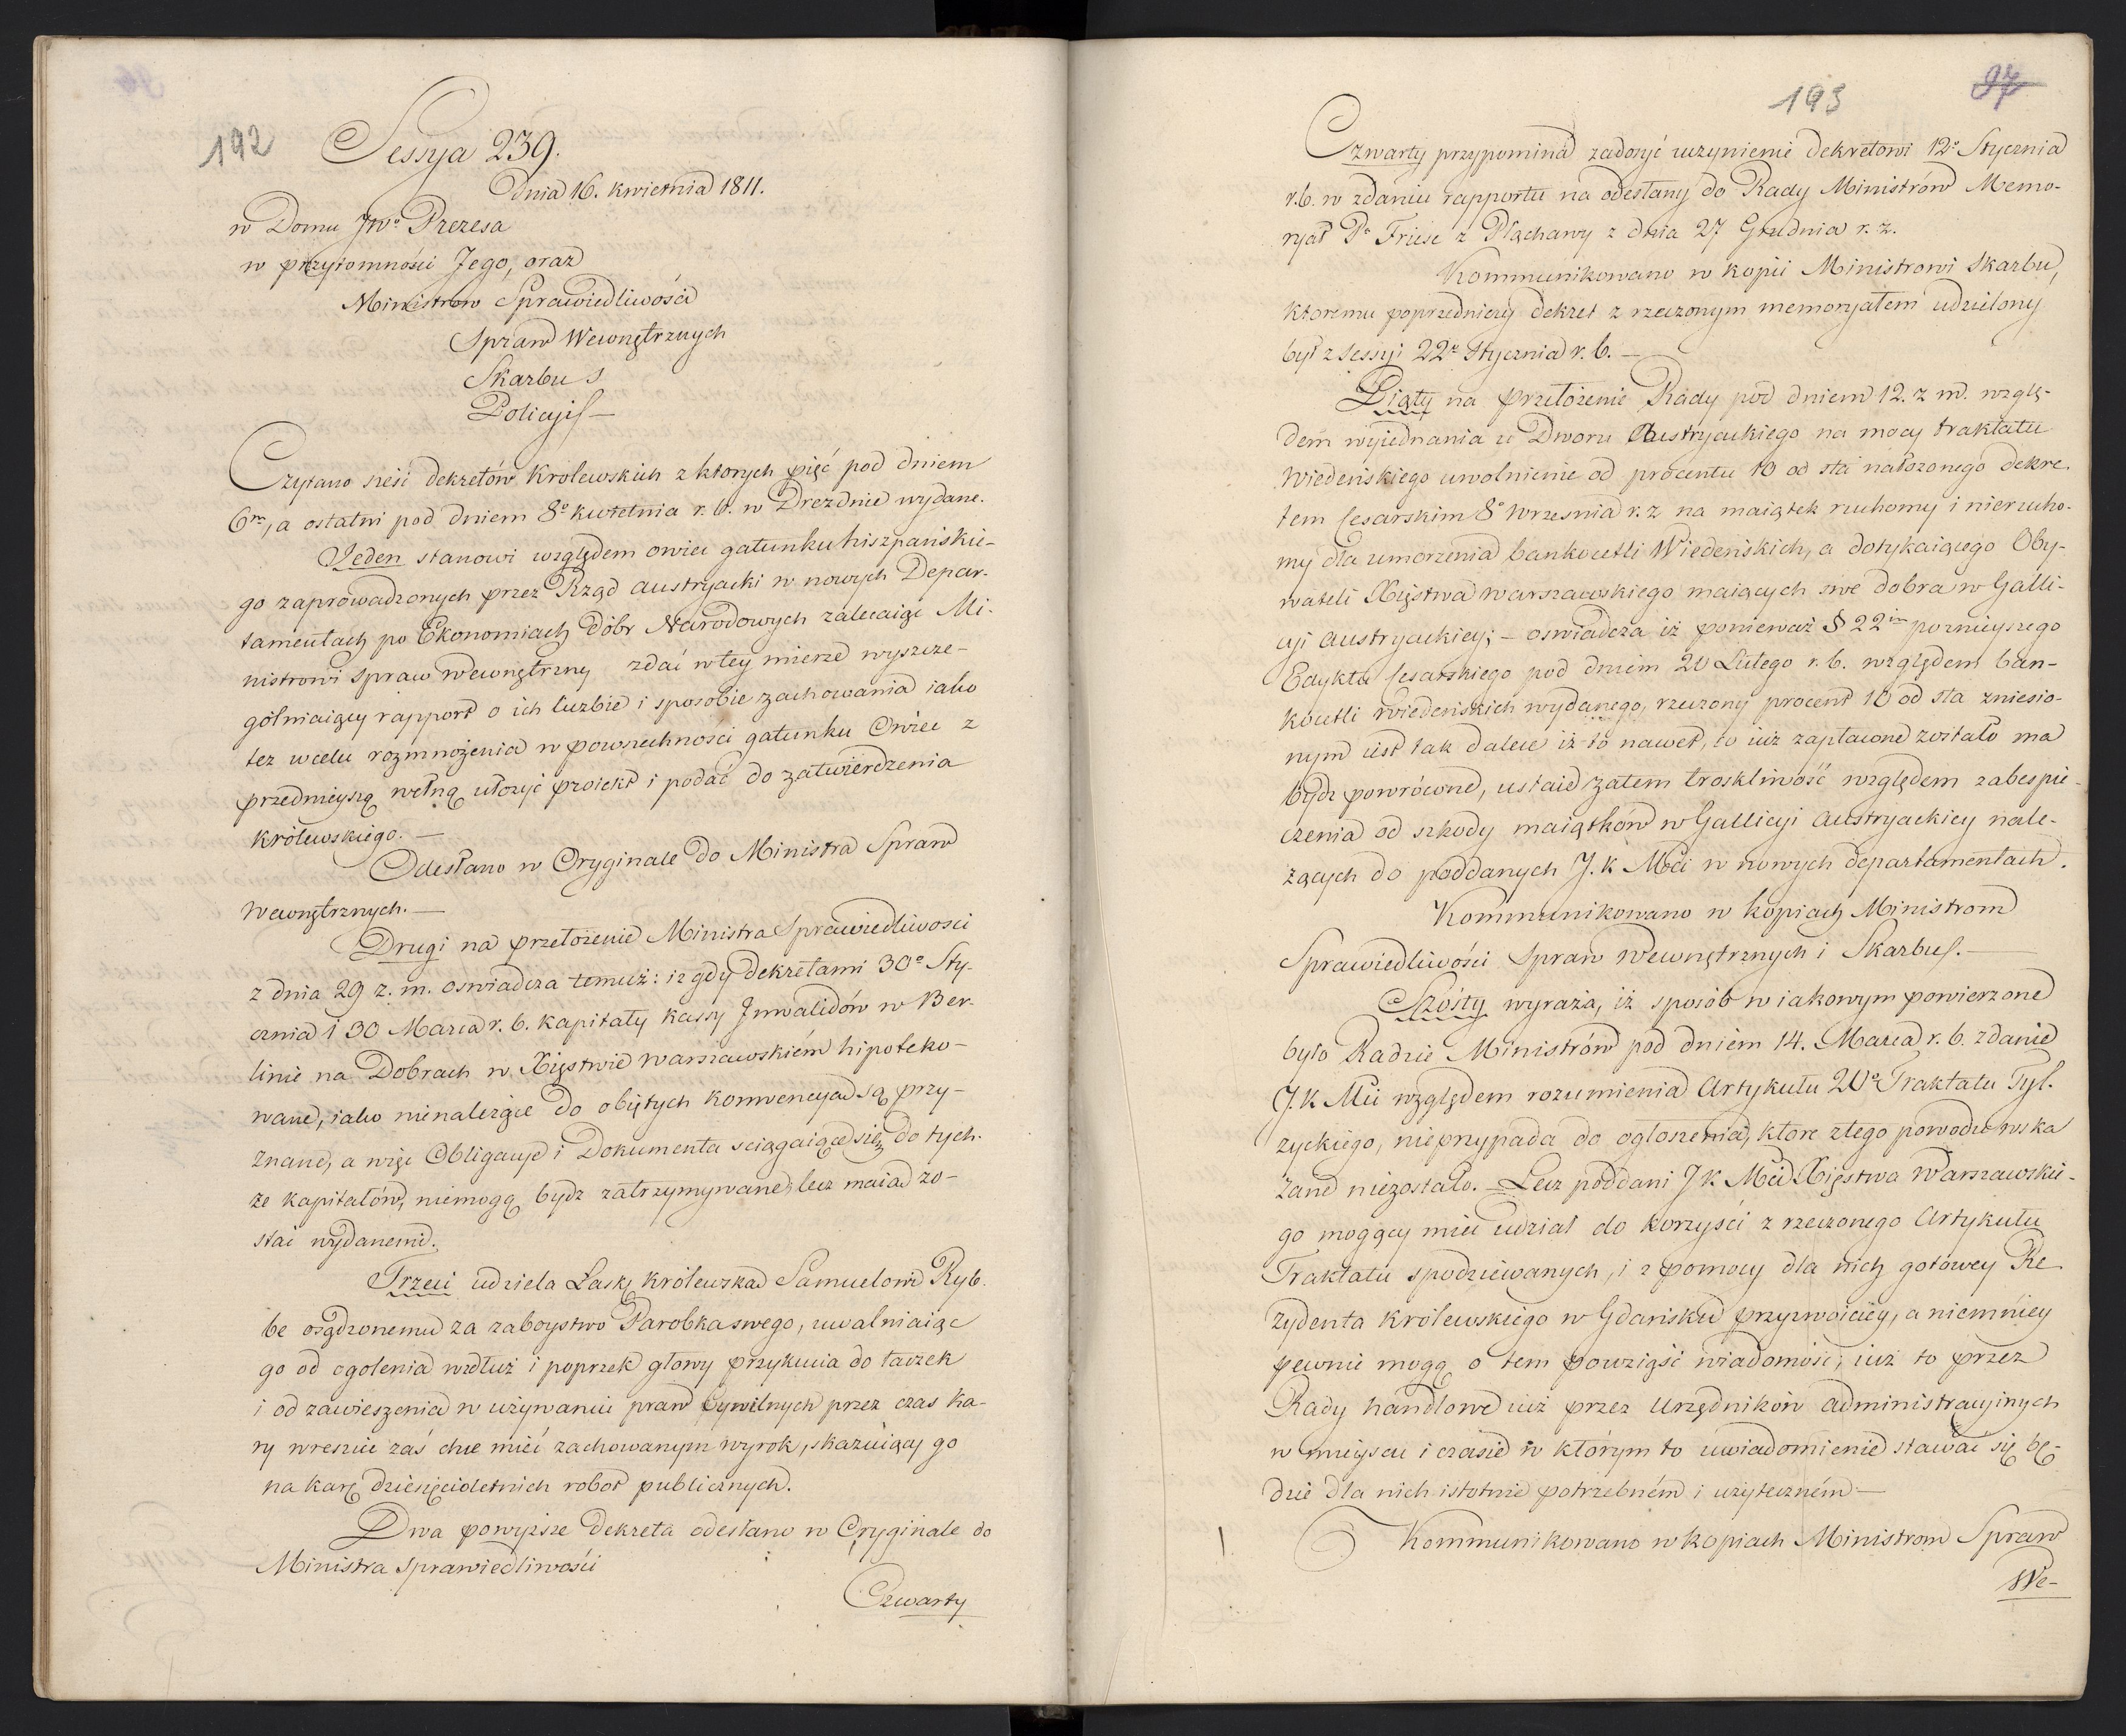 192
Sessya 239.
Dnia 16. kwietnia 1811.
w Domu JWo Prezesa
w przytomności Jego, oraz
Ministrow Sprawiedliwości
Spraw Wewnętrznych
Skarbu
Policyi —
Czytano sześć dekretów Królewskich z ktorych pięć pod dniem
6m, a ostatni pod dniem 8o kwietnia r. b. w Dreznie wydane.
Jeden stanowi względem owiec gatunku hiszpańskie-
go zaprowadzonych przez Rząd austryacki w nowych Depar-
tamentach po Ekonomiach dóbr Narodowych zalecaiąc Mi-
nistrowi spraw wewnętrzny zdać w tey mierze wyszcze-
gólniaiący rapport o ich liczbie i sposobie zachowania iako
tez wcelu rozmnożenia w powszechnosci gatunku Owiec z
przednieyszą wełną ułożyć proiekt i podać do zatwierdzenia
królewskiego. —
Odesłano w Oryginale do Ministra Spraw
Wewnętrznych. —
Drugi na przełożenie Ministra Sprawiedliwosci
z dnia 29 z. m. oswiadcza temuż: iz gdy dekretami 30o Sty-
cznia i 30 Marca r. b. kapitały kassy Inwalidów w Ber-
linie na Dobrach w Xięstwie warszawskiém hipoteko-
wane, iako nienależące do obiętych konwencyą są przy-
znane, a więc Obligacye i Dokumenta sciągaiące się do tych-
ze kapitałów, niemogą bydz zatrzymywane, lecz maią zo-
stać wydanemi.
Trzeci udziela Łaskę królewską Samuelowi Ryb-
be osądzonemu za zaboystwo Parobka swego, uwalniaiąc
go od ogolenia wzdłuż i poprzek głowy przykucia do taczek
i od zawieszenia w używaniu praw Cywilnych przez czas ka-
ry wreszcie zaś chce mieć zachowanym wyrok, skazuiący go
na karę dziesięcioletnich robot publicznych.
Dwa powyższe Dekreta odesłano w Oryginale do
Ministra sprawiedliwości
Czwarty
193
97
Czwarty przypomina zadosyć uczynienie dekretowi 12o Stycznia
r. b. w zdaniu rapportu na odesłany do Rady Ministrów Memo-
ryał Po Friese z Płąchawy z dnia 27 Grudnia r. z.
Kommunikowano w kopii Ministrowi Skarbu,
ktoremu poprzedniczy dekret z rzeczonym memoryałem udzielony
był z sessyi 22o stycznia r. b. —
Piąty na przełożenie Rady pod dniem 12. z m. wzglę-
dem wyiednania u Dworu Austryackiego na mocy traktatu
Wiedeńskiego uwolnienie od procentu 10 od sta nałożonego dekre-
tem Cesarskim 8o Wrzesnia r. z na maiątek ruchomy i nierucho-
my dla umorzenia bankocetli Wiedeńskich, a dotykaiącego Oby-
wateli Xięstwa warszawskiego maiących swe dobra w Galli-
cyi austryackiey; — oswiadcza iż ponieważ § 22im poznieyszego
Edyktu Cesarskiego pod dniem 20 Lutego r. b. względem ban-
kocetli wiedeńskich wydanego, rzeczony procent 10 od sta zniesio-
nym iest tak dalece iż to nawet, co iuż zapłacone zostało ma
bydz powrócone, ustaie zatem troskliwość względem zabespie-
czenia od szkody maiątków w Gallicyi austryackiey nale-
zących do poddanych J. K Mci w nowych departamentach.
Kommunikowano w kopiach Ministrom
Sprawiedliwości Spraw wewnętrznych i Skarbu. —
Szósty wyraża, iż sposób w iakowym powierzone
było Radzie Ministrów pod dniem 14. Marca r. b. zdanie
J. K Mci względem rozumienia Artykułu 20o Traktatu Tyl-
zyckiego, nieprzypada do ogłoszenia, ktore z tego powodu wska
zane niezostało. — Lecz poddani J K Mci Xięstwa Warszawskie-
go mogący mieć udział do korzysci z rzeczonego Artykułu
Traktatu spodziewanych, i z pomocy dla nich gotowey Re-
zydenta królewskiego w Gdańsku przyzwoiciey, a niemniey
pewnie mogą o tem powziąść wiadomość; iuż to przez
Rady handlowe iuż przez Urzędnikòw administracyinych
w mieyscu i czasie w którym to uwiadomienie stawać się bę-
dzie dla nich istotnie potrzebném i użyteczném —
Kommunikowano w kopiach Ministrom Spraw
We-